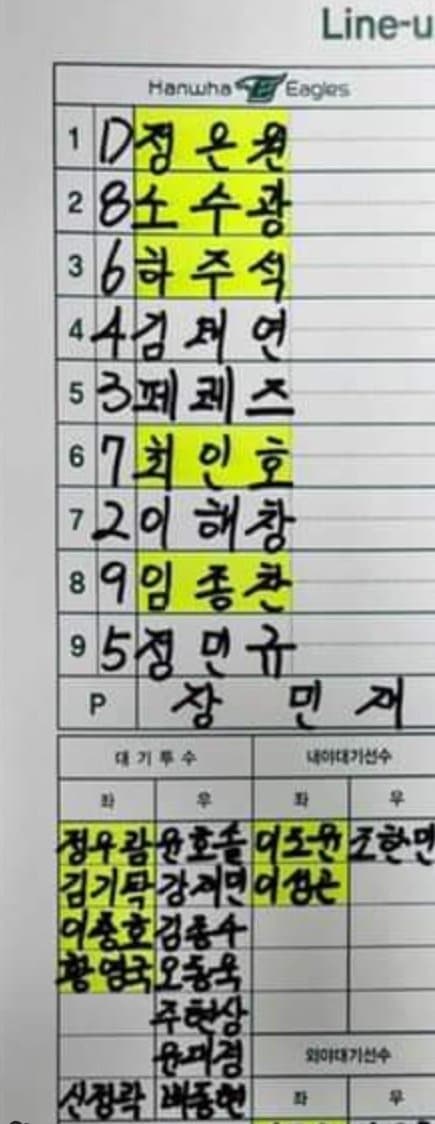 Line-u
Hanwha Eagles
1 D 정은원
2 8 노수광
3 6 하주석
4 4 김태연
5 3 페레즈
6 7 최인호
7 2 이해창
8 9 임종찬
9 5 정민규
P 장민재
대기투수 내야대기선수
좌 우 좌 우
정우람 윤호솔 이도윤 조한민
김기탁 강재민 이성곤
이충호 김종수
황영국 오동욱
주현상
윤대경 외야대기선수
신정락 배동현 좌 우